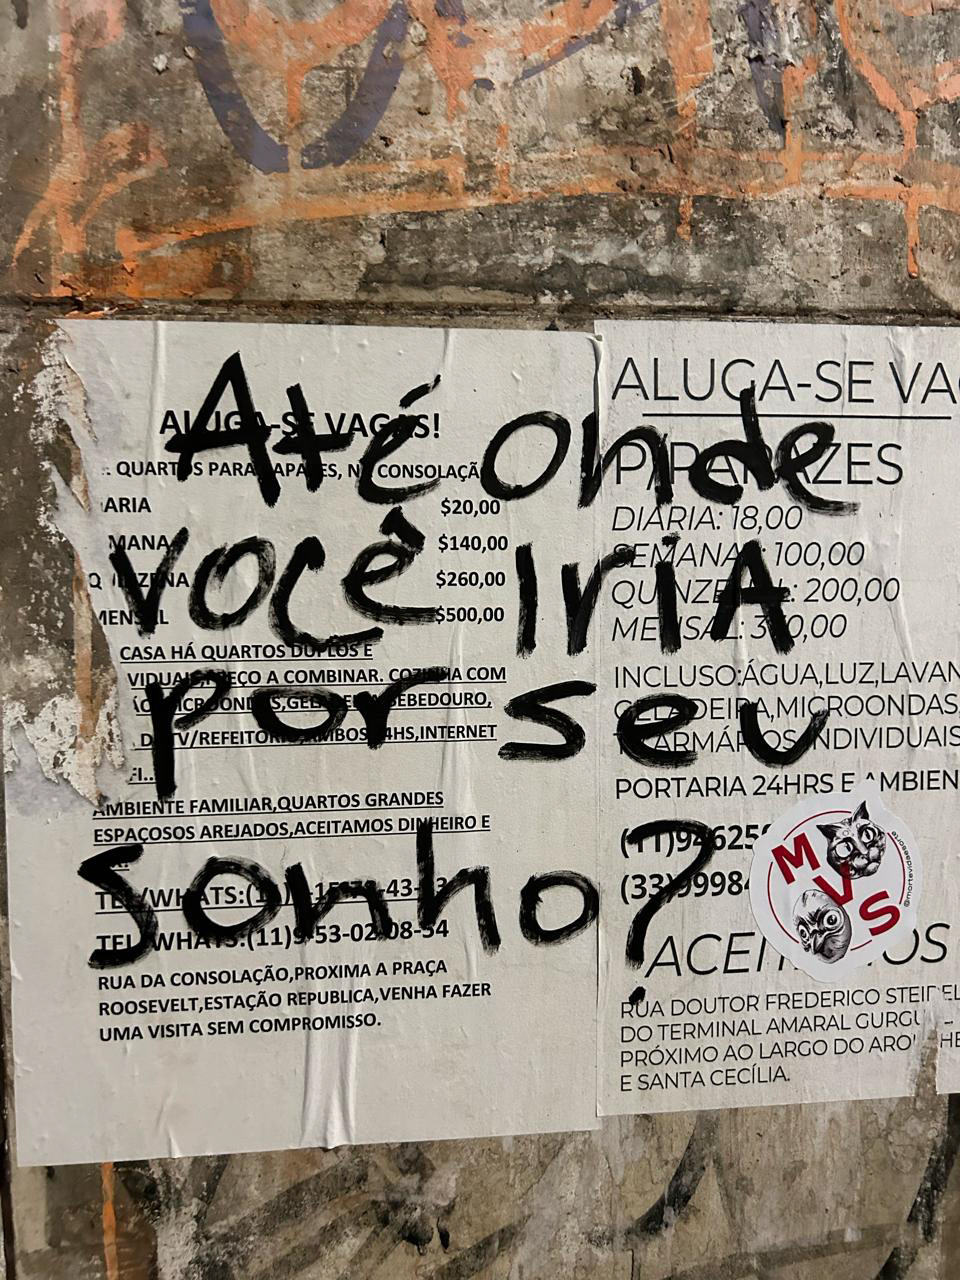 Até onde
você iria
por seu
sonho?
ALUGA-SE VAGAS!
QUARTOS PARA RAPAZES, NA CONSOLAÇÃ
ARIA $20,00
MANA $140,00
QUINZENA $260,00
MENSAL $500,00
CASA HÁ QUARTOS DUPLOS E
VIDUAIS,PREÇO A COMBINAR. COZINHA COM
MICROONDAS,GELADEIRA,BEBEDOURO,
TV/REFEITORIO,AMBOS 24HS,INTERNET
FI..
AMBIENTE FAMILIAR,QUARTOS GRANDES
ESPAÇOSOS AREJADOS,ACEITAMOS DINHEIRO E
TEL/WHATS:(11)
TEL/WHATS:(11)9 53-02 08-54
RUA DA CONSOLAÇÃO,PROXIMA A PRAÇA
ROOSEVELT,ESTAÇÃO REPUBLICA,VENHA FAZER
UMA VISITA SEM COMPROMISSO.
ALUGA-SE VA
PARA RAPAZES
DIÁRIA: 18,00
SEMANAL: 100,00
QUINZENAL: 200,00
MENSAL:
INCLUSO:ÁGUA,LUZ,LAVAN
GELADEIRA,MICROONDAS,
ARMÁRIOS INDIVIDUAIS
PORTARIA 24HRS E AMBIEN
(11)94625
(33)9998
MVS
@mortevidaesorte
RUA DOUTOR FREDERICO STEIDEL
DO TERMINAL AMARAL GURGE
PRÓXIMO AO LARGO DO AROUCHE
E SANTA CECÍLIA.